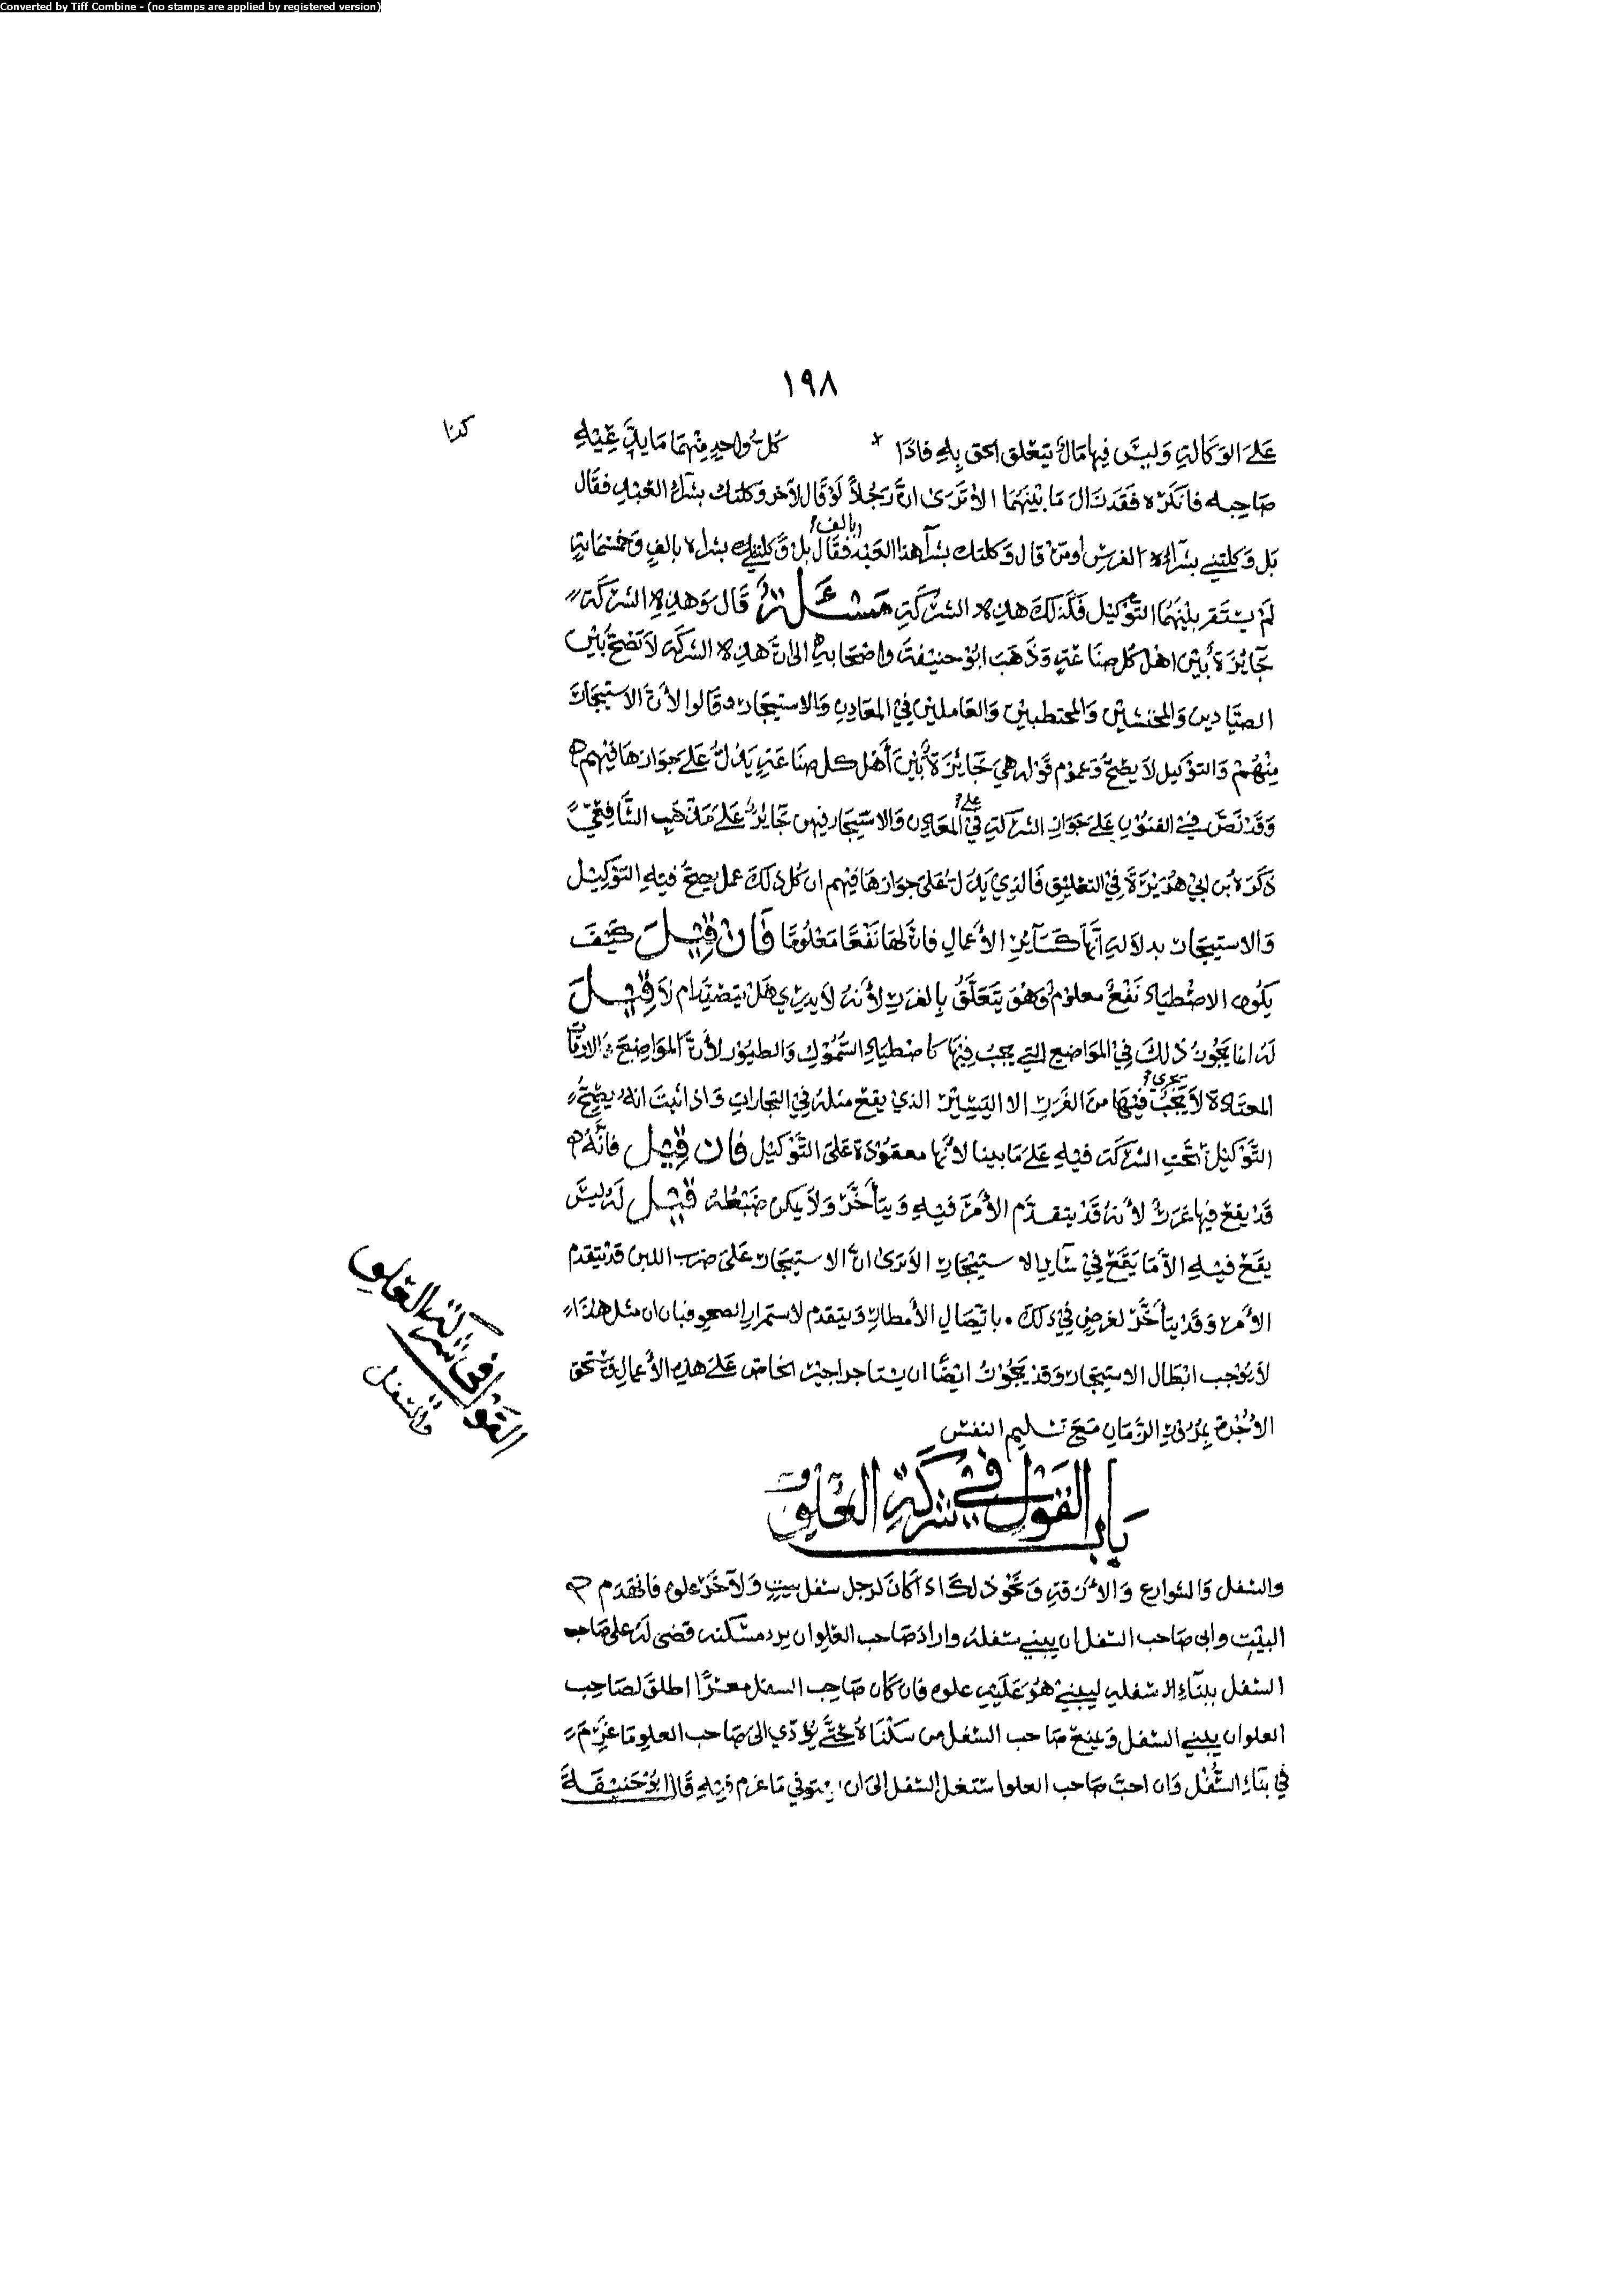 Converted by Tiff Combine - (no stamps are applied by registered version)
١٩٨
على الوكالة وليس فيها مال يتعلق الحق به فاذا كل واحد منهما ما يدعيه
كذا
صاحبه فانكره فقد زال ما بينهما الا ترى ان رجلاً لو قال لآخر وكلتك بشراء العبد فقال
بل وكلتني بشراء الفرس او من قال وكلتك بشراء هذا العبد بالف فقال بل وكلتني بشراه بالف وخمسمائة
لم يستقر بينهما التوكيل فكذلك هذه الشركة مسئلة قال وهذه الشركة
جائزة بين اهل كل صناعة وذهب ابو حنيفة واصحابه الى ان هذه الشركة لا تصح بين
الصيادين والمحتشين والمحتطبين والعاملين في المعادن والاستيجار وقالوا لأن الاستيجار
منهم والتوكيل لا يصح وعموم قوله هي جائزة بين أهل كل صناعة يدل على جوازها فيهم
وقد نص في الفنون على جواز الشركة في المعادن والاستيجار فيهن جائز على مذهب الشافعي
على
ذكره بن ابي هريرة في التعليق فالذي يدل على جوازها فيهم ان كل ذلك عمل يصح فيه التوكيل
والاستيجار بدلالة انها كسائر الأعمال فان لها نفعا معلوما فان قيل كيف
يكون الاصطياد نفع معلوم وهو يتعلق بالغرر لأنه لا يدري هل يتصيد ام لا قيل
له انما يجوز ذلك في المواضع التي يجب فيها كاصطياد السموك والطيور لأن المواضع والاوقات
المعتادة لا يجب فيها من الغرر الا اليسير الذي يقع مثله في التجارات واذا ثبت انه يصح
يجري
التوكيل تحت الشركة فيه على ما بينا لأنها معقودة على التوكيل فان قيل فانه
قد يقع فيها غرر لأنه قد يتقدم الأمر فيه ويتأخر ولا يمكن ضبطه قيل له ليس
يقع فيه الا ما يقع في سائر الاستيجار الا ترى ان الاستيجار على ضرب اللبن قد يتقدم
الأمر وقد يتأخر لغرض في ذلك باتصال الأمطار ويتقدم لاستمرار الصحو فبان ان مثل هذا
لا يوجب ابطال الاستيجار وقد يجوز ايضا ان يستاجر اجير الخاص على هذه الأعمال ويستحق
الأجرة بمرور الزمان مع تسليم النفس
القول في شركة العلو
والسفل
باب القول في شركة العلو
والسفل والشوارع والأزقة ونحو ذلك اذا كان لرجل سفل بيت ولآخر علوه فانهدم
البيت وابى صاحب السفل ان يبني سفله واراد صاحب العلو ان يرد مسكنه قضى له على صاحب
السفل ببناء سفله ليبني هو عليه علوه فان كان صاحب السفل معسرا اطلق لصاحب
العلو ان يبني السفل ويمنع صاحب السفل من سكناه حتى يؤدي الى صاحب العلو ما غرم
في بناء السفل وان احب صاحب العلو استغل السفل الى ان يستوفي ما غرم فيه قال ابو حنيفة